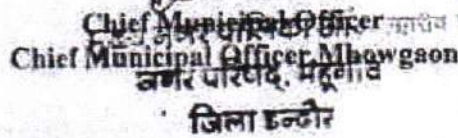 Chief Municipal Officer
Chief Municipal Officer Mhowgaon
नगर परिषद्, महूगांव
जिला इन्दौर